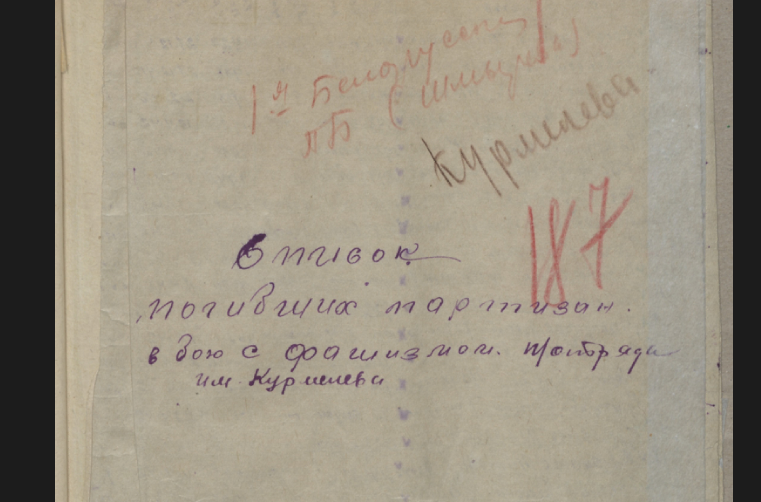 1я Белорусская
ПБ (Шмырева)
Курмелева
187
Список
погибших партизан.
в бою с фашизмом. П/отряда
им. Курмелева